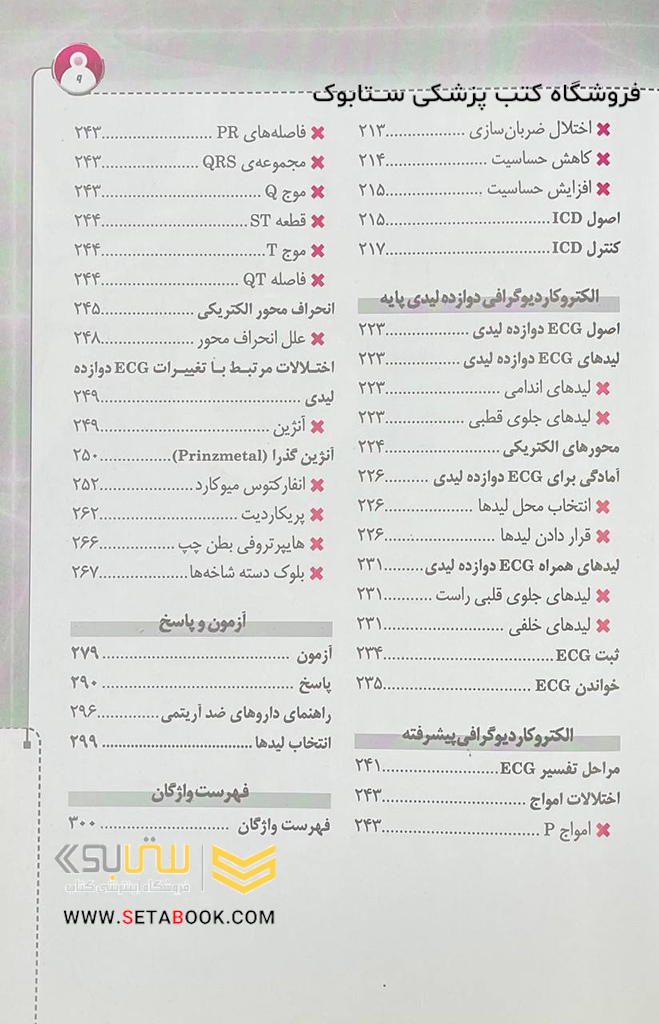 ۹
فروشگاه کتب پزشکی ستابوک
اختلال ضربان‌سازی ..................۲۱۳
کاهش حساسیت .......................۲۱۴
افزایش حساسیت ......................۲۱۵
اصول ICD................................۲۱۵
کنترل ICD...............................۲۱۷
الکتروکاردیوگرافی دوازده لیدی پایه
اصول ECG دوازده لیدی ...................۲۲۳
لیدهای ECG دوازده لیدی .................۲۲۳
لیدهای اندامی .........................۲۲۳
لیدهای جلوی قطبی ..................۲۲۳
محورهای الکتریکی..........................۲۲۴
آمادگی برای ECG دوازده لیدی ..........۲۲۶
انتخاب محل لیدها ....................۲۲۶
قرار دادن لیدها .........................۲۲۶
لیدهای همراه ECG دوازده لیدی.........۲۳۱
لیدهای جلوی قلبی راست ...........۲۳۱
لیدهای خلفی ..........................۲۳۱
ثبت ECG ......................................۲۳۴
خواندن ECG .................................۲۳۵
الکتروکاردیوگرافی پیشرفته
مراحل تفسیر ECG..........................۲۴۱
اختلالات امواج ................................۲۴۳
امواج P ....................................۲۴۳
فاصله‌های PR .........................۲۴۳
مجموعه‌ی QRS .......................۲۴۳
موج Q .....................................۲۴۳
قطعه ST .................................۲۴۴
موج T .....................................۲۴۴
فاصله QT ...............................۲۴۴
انحراف محور الکتریکی .....................۲۴۵
علل انحراف محور .....................۲۴۸
اختلالات مرتبط با تغییرات ECG دوازده
لیدی ............................................۲۴۹
آنژین ......................................۲۴۹
آنژین گذرا (Prinzmetal)................۲۵۰
انفارکتوس میوکارد.....................۲۵۲
پریکاردیت ...............................۲۶۲
هایپرتروفی بطن چپ .................۲۶۶
بلوک دسته شاخه‌ها....................۲۶۷
آزمون و پاسخ
آزمون ..........................................۲۷۹
پاسخ ...........................................۲۹۰
راهنمای داروهای ضد آریتمی..............۲۹۶
انتخاب لیدها ..................................۲۹۹
فهرست واژگان
فهرست واژگان .............................۳۰۰
ستابوک
فروشگاه اینترنتی کتاب
WWW.SETABOOK.COM